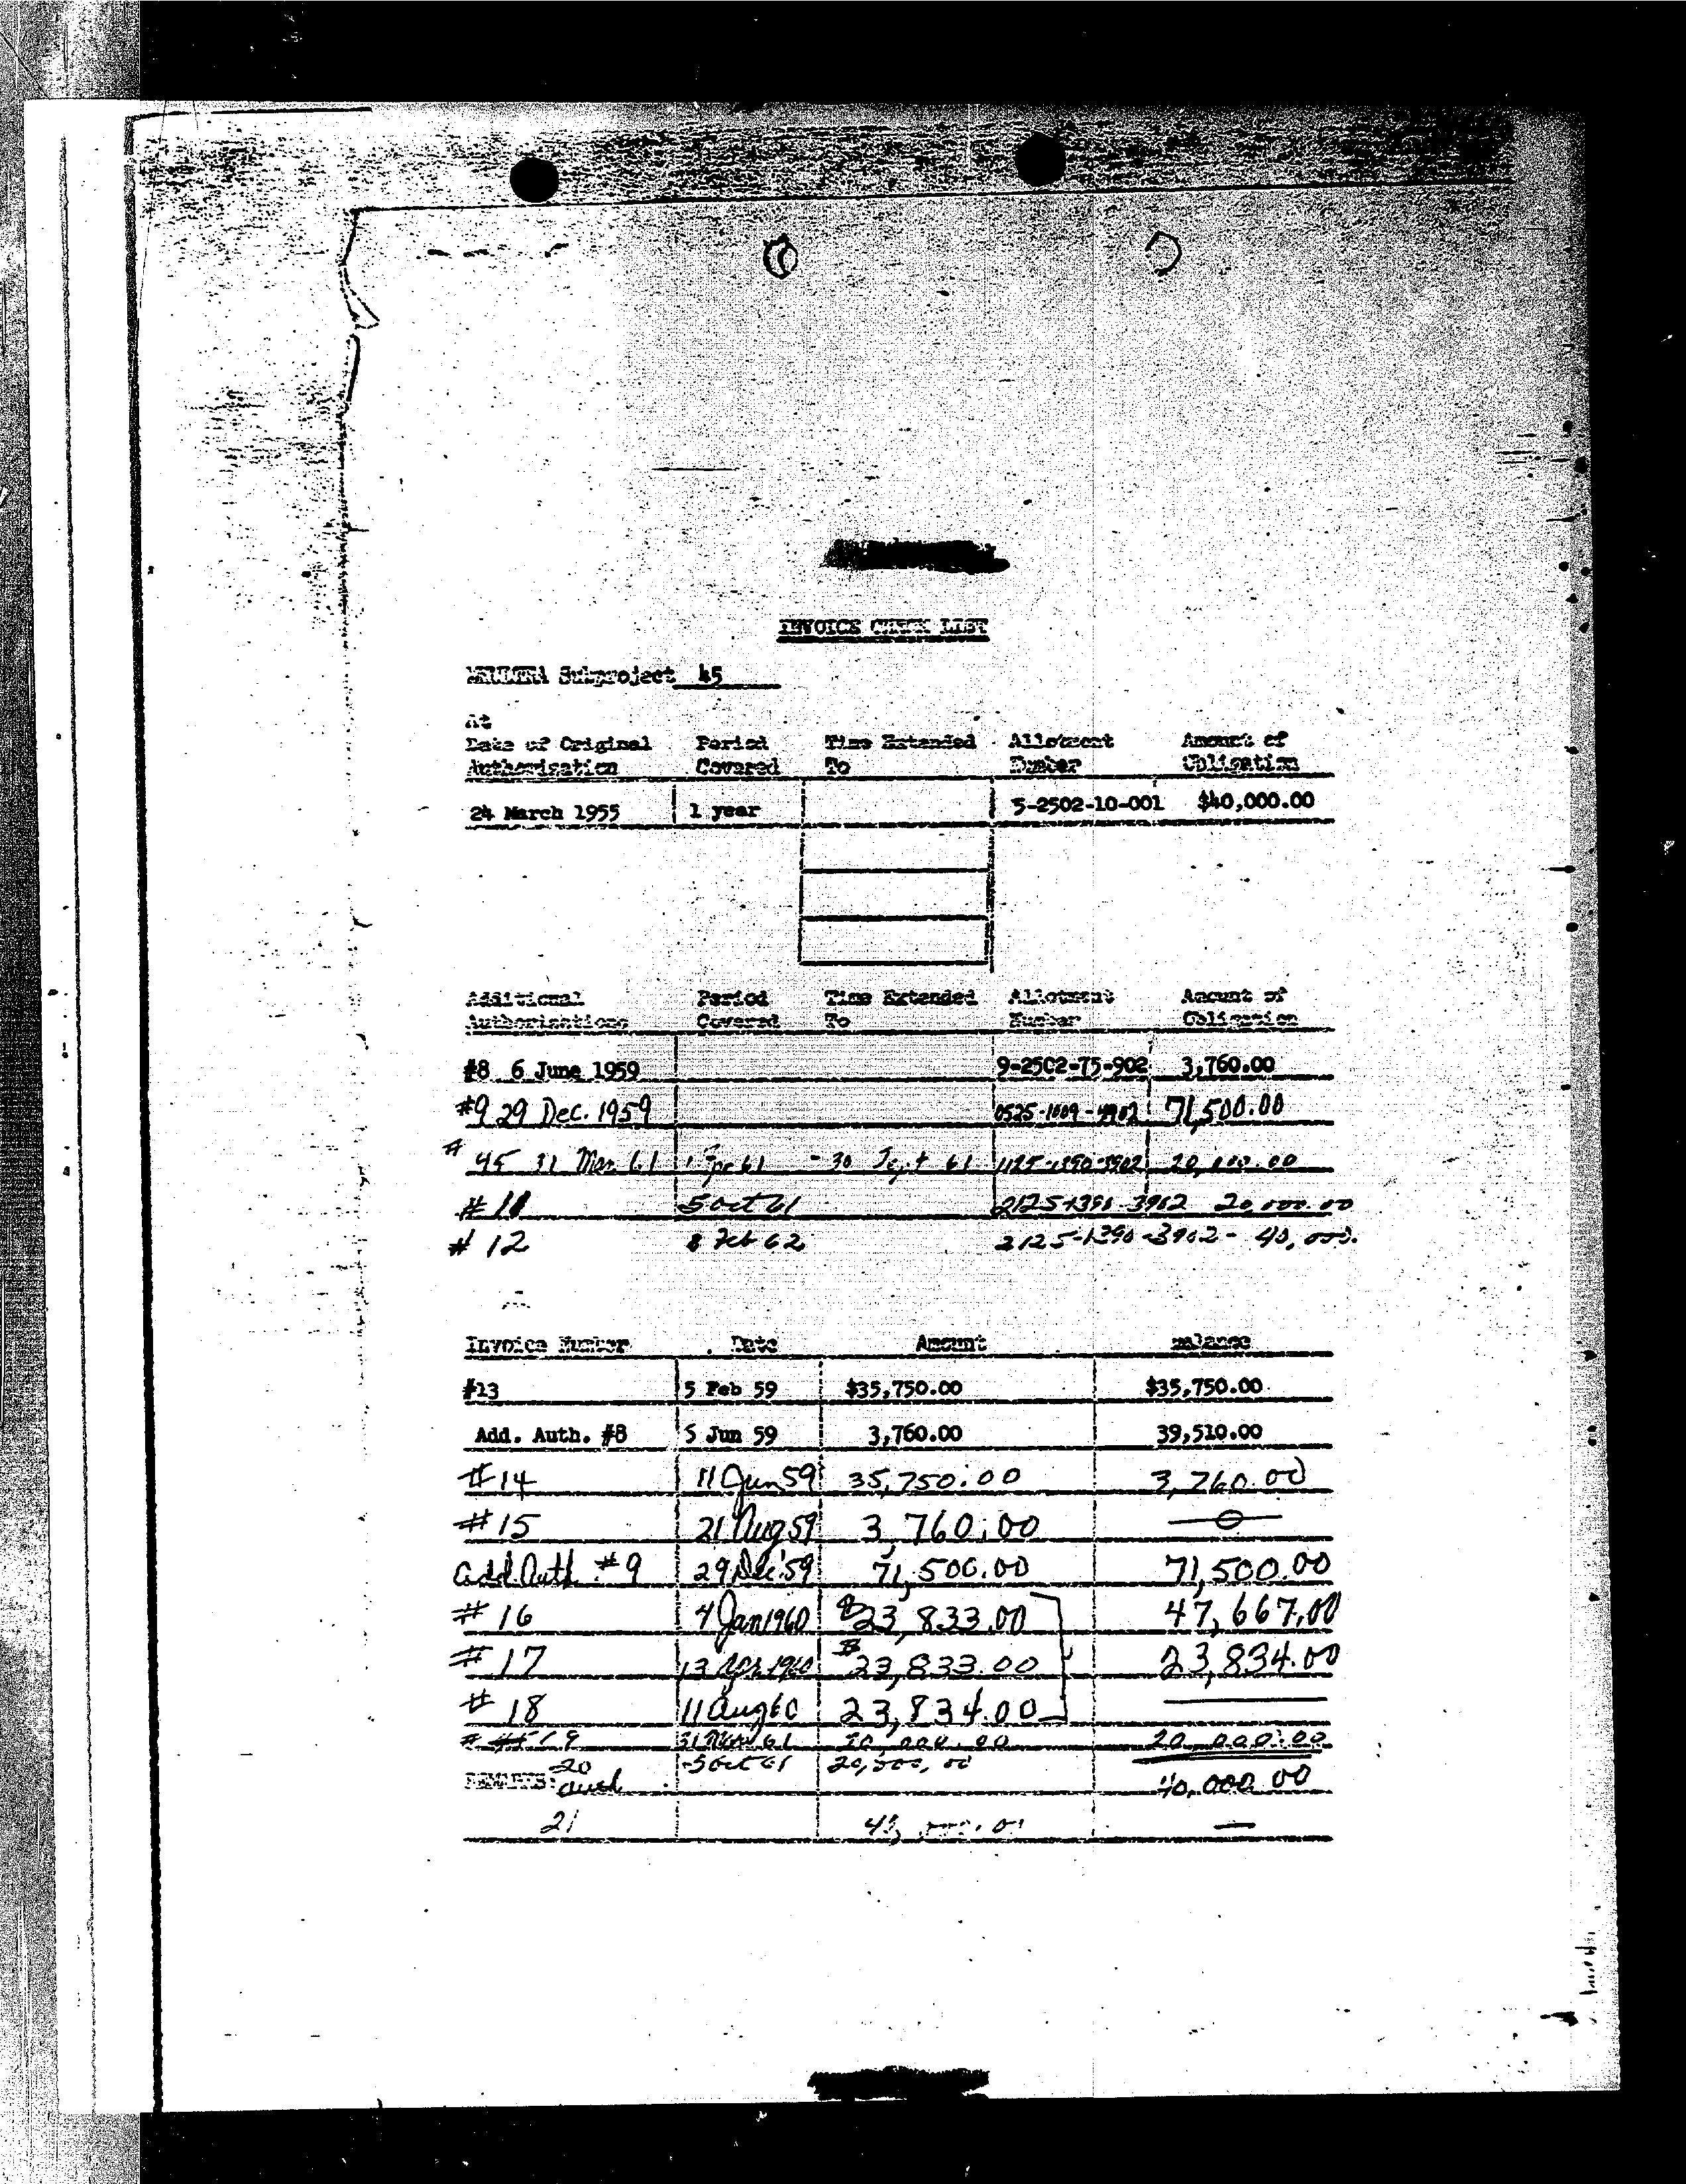 INVOICE CHECK LIST
MKULTRA Subproject 45
At
Date of Original Period Time Extended Allotment Amount of
Authorization Covered To Number Obligation
24 March 1955 1 year 5-2502-10-001 $40,000.00
Additional Period Time Extended Allotment Amount of
Authorizations Covered To Number Obligation
#8 6 June 1959 9-2502-75-902 3,760.00
#9 29 Dec. 1959 0525-1009-4902 71,500.00
# 45 31 Mar 61 1 Apr 61 - 30 Sept 61 1125-1390-3902 20,000.00
# 11 5 Oct 61 2125-1390-3902 20,000.00
# 12 8 Feb 62 2125-1390-3902 - 40,000.
Invoice Number Date Amount Balance
#13 5 Feb 59 $35,750.00 $35,750.00
Add. Auth. #8 5 Jun 59 3,760.00 39,510.00
#14 11 Jun 59 35,750.00 3,760.00
#15 21 Aug 59 3,760.00 0
Add. Auth. #9 29 Dec '59 71,500.00 71,500.00
# 16 4 Jan 1960 $23,833.00 47,667.00
# 17 13 Apr 1960 $23,833.00 23,834.00
# 18 11 Aug 60 23,834.00
# 19 31 Mar 61 20,000.00 20,000.00
20 5 Oct 61 20,000.00
REMARKS: 40,000.00
21 40,000.00 —